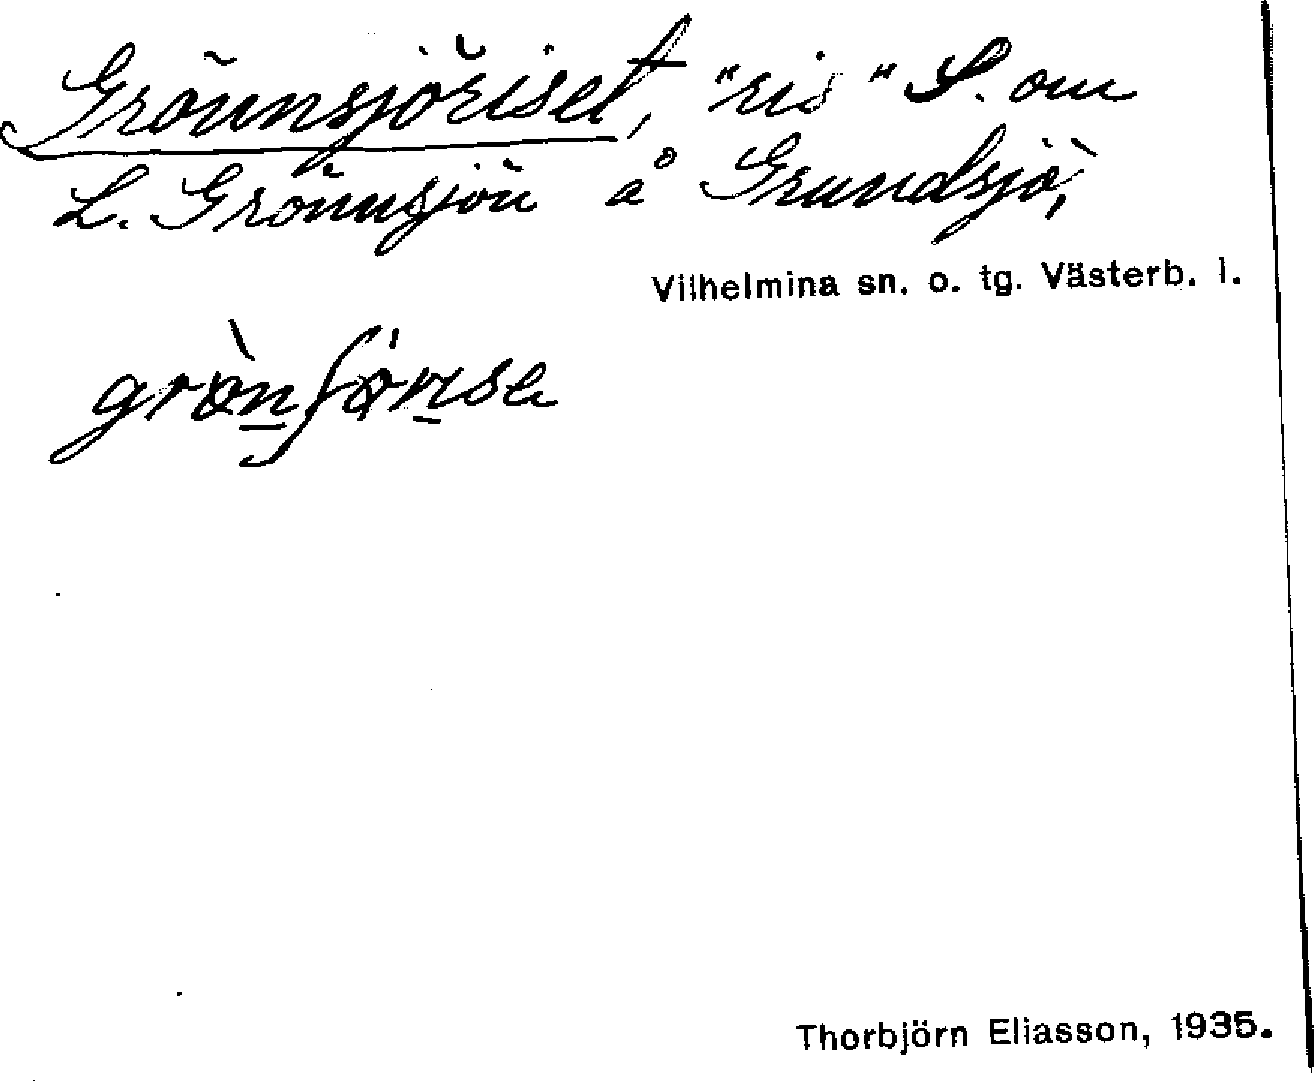 Grönnsjöriset, "ris" S. om
L. Grönnsjön å Grundsjö,
Vilhelmina sn. o. tg. Västerb. l.
Thorbjörn Eliasson, 1935.